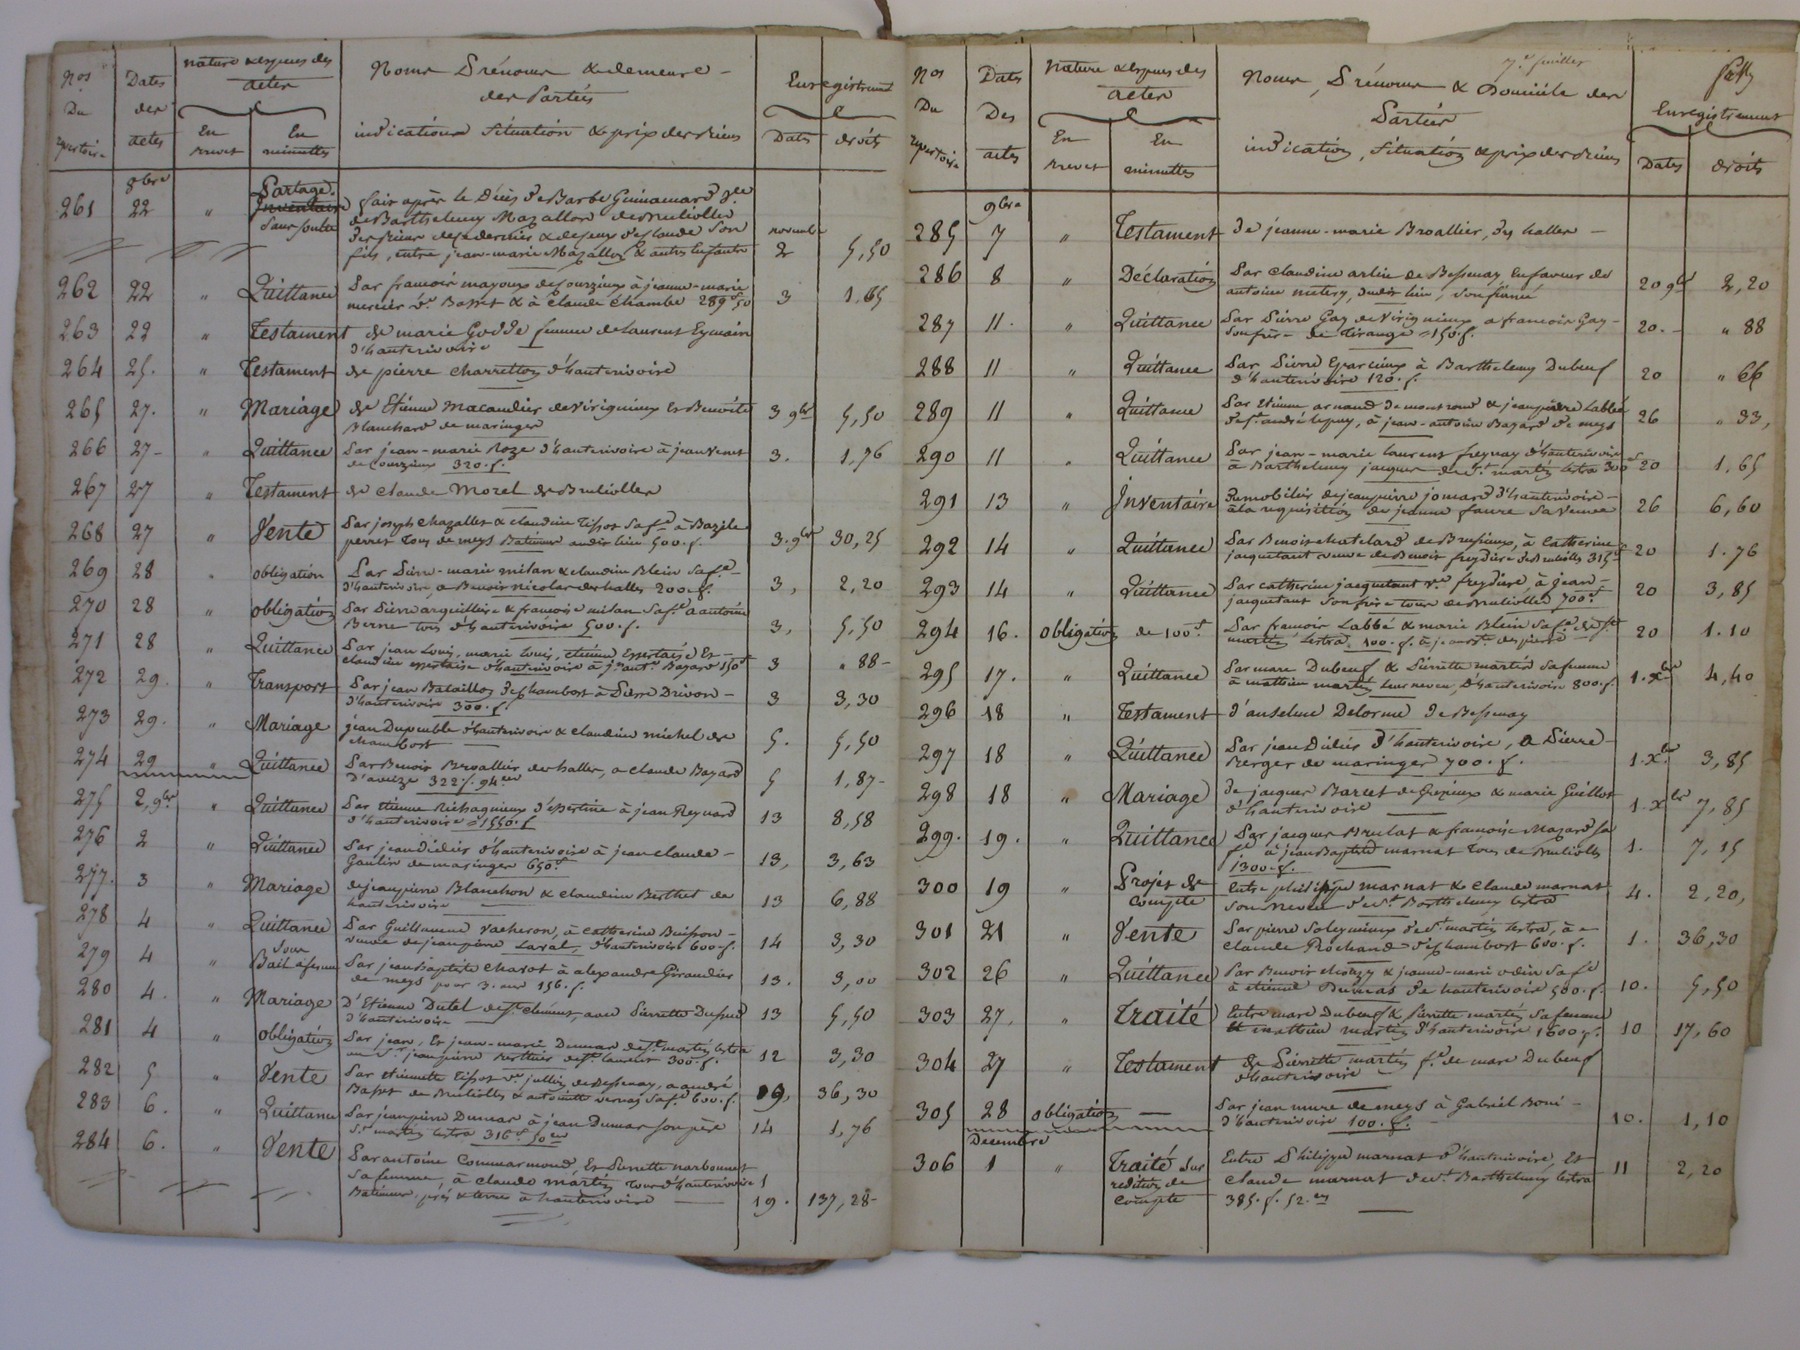 Nos Du repertoire
Dates des actes
nature & especes des actes
En Brevet
En minuttes
Noms Prénoms & demeure des Parties
indications situation & prix des Biens
Enregistrement
Dates
droits
8bre
261 22 " Partage Inventaire Sans soulte fait après le Décès de Barbe Guinamard
de Barthelemy Mazallon de Brullioles
des Biens de ce dernier & de ceux de Claude son
fils, entre jean-marie Mazallon & autres Enfants novembre 2 5,50
262 22 " Quittance Par françois mayoux de Courzieux à jeanne-marie
mercier Ve Basset & à Claude Chambe 289 f 50 3 1,65
263 22 " Testament de marie Godde femme de Laurent Eymain
d'hauterivoire
264 25. " Testament de pierre Charretton d'hauterivoire
265 27. " Mariage de Etienne Macaudier de Virigneux et Benoite
Blanchard de maringes 3 9bre 5,50
266 27 - " Quittance Par jean-marie Roze d'hauterivoire à jean Venet
de Courzieux 320. f. 3. 1,76
267 27 " Testament de Claude Morel de Brullioles
268 27 " Vente Par joseph Chazallet & claudine Tissot sa fe à Bazile
perret tous de meys Batiment audit lieu 500. f. 3. 9bre 30,25
269 28 " obligation Par Pierre-marie milan & claudine Blein sa fe
d'hauterivoire, a Benoit Nicolas des halles 200. f. 3, 2,20
270 28 " obligation Par Pierre arquilliere & françoise milan sa fe a antoine
Berne tous d'hauterivoire 500. f. 3, 5,50
271 28 " Quittance Par jean Louis, marie Louis, etienne Essertaise Et
claudine essertaise d'hauterivoire à jn ante Bazard 150 f 3 " 88 -
272 29. " Transport Par jean Bataillon de Chambost à Pierre Drivon -
d'hauterivoire 300. f. 3 3,30
273 29. " Mariage jean Dupeuble d'hauterivoire & claudine michel de
Chambost 5. 5,50
274 29 " Quittance Par Benoit Broallier des halles, a claude Bazard
d'aveize 322. f. 94 es 5 1,87 -
275 2, 9bre " Quittance Par etienne Richagneux d'essertine à jean Reynard
d'hauterivoire = 1550. f 13 8,58
276 2 " Quittance Par jean didier d'hauterivoire à jean claude -
Goulin de maringes 650 f 13, 3,63
277. 3 " Mariage de jean pierre Blanchon & claudine Berthet de
hauterivoire 13 6,88
278 4 " Quittance Par Guillaume Vacheron, à Catherine Buisson -
veuve de jean pierre Laval, d'hauterivoire 600. f. 14 3,30
279 4 " Sous Bail à ferme Par jean Baptiste Charot à alexandre Giraudier
de meys pour 3. ans 156. f. 13. 3,00
280 4. " Mariage D'Etienne Dutel de St clement, avec Pierrette Dufud
d'hauterivoire 13 5,50
281 4 " obligation Par jean, Et jean-marie Dumas de St martin lestra
au Sr jean pierre Berthier de St laurent 300. f. 12 3,30
282 5 " Vente Par etiennette Tissot ve jullien de Bessenay, a andré
Basset de Brullioles & antoinette Vernay sa fe 600. f. 19, 36,30
283 6. " Quittance Par jean pierre Dumas à jean Dumas son père
St martin lestra 316 f 50 es 14 1,76
284 6. " Vente Par antoine Commarmond, Et Pierrette narbonnet
sa femme, à claude martin Tous d'hauterivoire
Batiment, prés & terre à hauterivoire 19. 137,28 -
Nos Du repertoire
Dates Des actes
nature & especes des actes
En Brevet
En minuttes
7e feuillet
Noms, Prénoms & Domicile des Parties
indication, situation & prix des Biens
Enregistrement
Dates
droits
9bre
285 7 " Testament de jeanne-marie Broallier, des halles -
286 8 " Déclaration Par claudine arlin de Bessenay En faveur de
antoine metery, dudit lieu, son fiancé 20 9bre 2,20
287 11. " Quittance Par Pierre Gay de Virigneux a francois Gay -
son frère de Tirange = 150 f. 20. - " 88
288 11 " Quittance Par Pierre Eparcieux à Barthelemy Dubeuf
d'hauterivoire 120. f. 20 " 66
289 11 " Quittance Par Etienne arnaud de montrond & jean pierre Labbé
de St andré lepuy, à jean-antoine Bazard de meys 26 " 33,
290 11 " Quittance Par jean-marie Laurent freynay d'hauterivoire
à Barthelemy jacques de St martin lestra 300 f 20 1,65
291 13 " Inventaire Du mobilier de jean pierre jomard d'hauterivoire -
à la requisition de jeanne faure sa veuve 26 6,60
292 14 " Quittance Par Benoit chatelard de Brussieux, à Catherine
jacquetant veuve de Benoit freydiere de Brullioles 315 f 20 1.76
293 14 " Quittance Par catherine jacquetant ve freydiere à jean -
jacquetant son frère tous de Brullioles 700 f 20 3,85
294 16. obligation de 100 f. Par francois Labbé & marie Blein sa fe de St
martin lestra 100. f. à 20 1.10
295 17. " Quittance Par marc Dubeuf & Pierrette martin sa femme
à mathieu martin leur neveu, d'hauterivoire 800. f. 1. Xbre 4,40
296 18 " Testament d'anselme Delorme de Bessenay
297 18 " Quittance Par jean Didier d'hauterivoire, a Pierre -
Berger de maringes 700. f. 1. Xbre 3,85
298 18 " Mariage de jacques Barcet de Grezieux & marie Guillot
d'hauterivoire 1. Xbre 7,85
299. 19. " Quittance Par jacques Brulas & francoise Mazard sa
fe à jean Baptiste marnat Tous de Brullioles
1300. f. 1. 7,15
300 19 " Projet de Compte Entre philippe marnat & Claude marnat
son neveu de St Barthelemy lestra 4. 2,20,
301 21 " Vente Par pierre Soleymieux de St martin lestra, à -
claude Rochand de Chambost 600. f. 1. 36,30
302 26 " Quittance Par Benoit & jeanne-marie odin sa fe
à etienne Dumas de hauterivoire 500. f. 10. 5,50
303 27. " Traité Entre marc Dubeuf & Pierrette martin sa femme
Et mathieu martin d'hauterivoire 1600 f. 10 17,60
304 27 " Testament de Pierrette martin fe de marc Dubeuf
d'hauterivoire
305 28 obligation — Par jean mure de meys à Gabriel Boni -
d'hauterivoire 100. f. 10. 1,10
Decembre
306 1 " Traité Sur reddition de Compte Entre Philippe marnat d'hauterivoire, Et
claude marnat de St Barthelemy lestra
385. f. 52. es 11 2,20